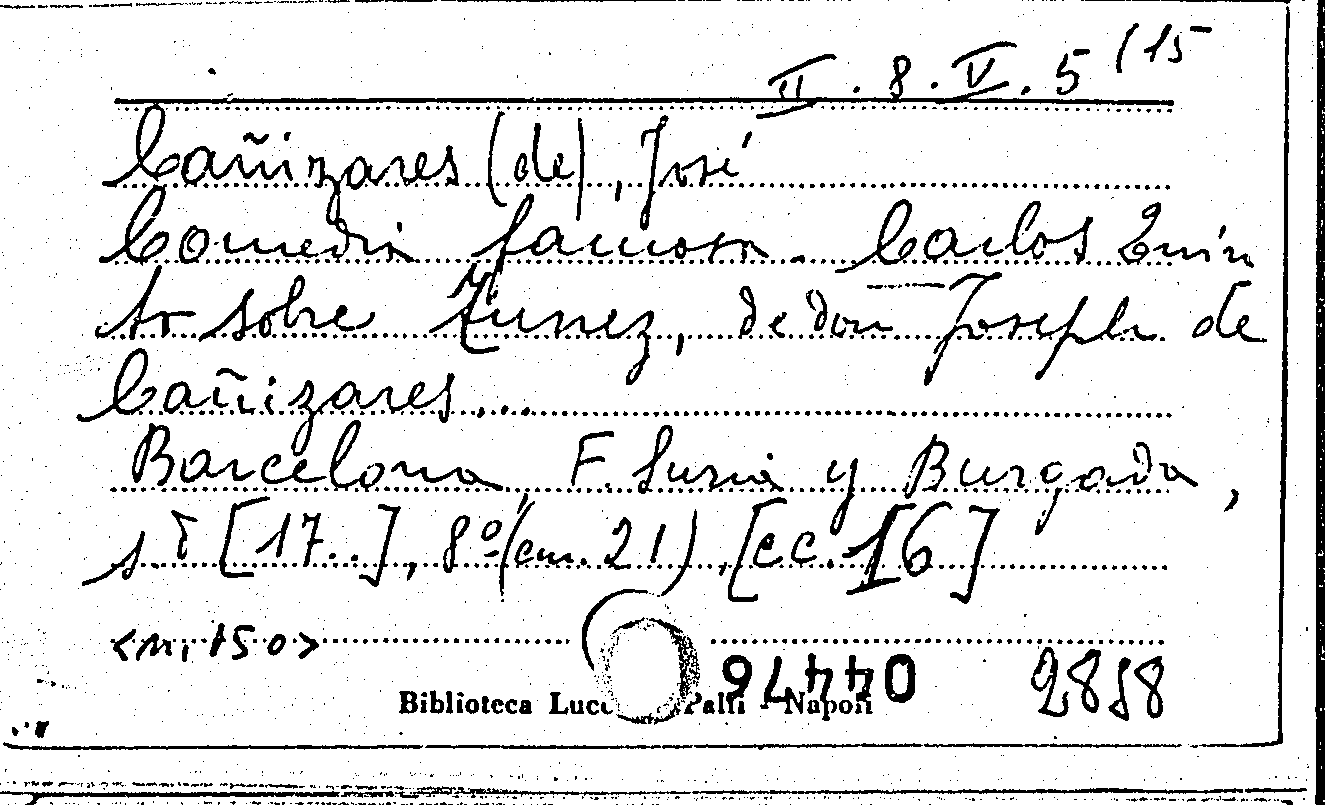 II . 8 . V . 5 (15
Cañizares (de), José
Comedia famosa. Carlos Quin
to sobre Tunez, de don Joseph de
Cañizares...
Barcelona, F. Suria y Burgada,
s.t [17..], 8º(cm. 21), [cc. 16]
<n. 150>
04476
2858
Biblioteca Palli - Napoli